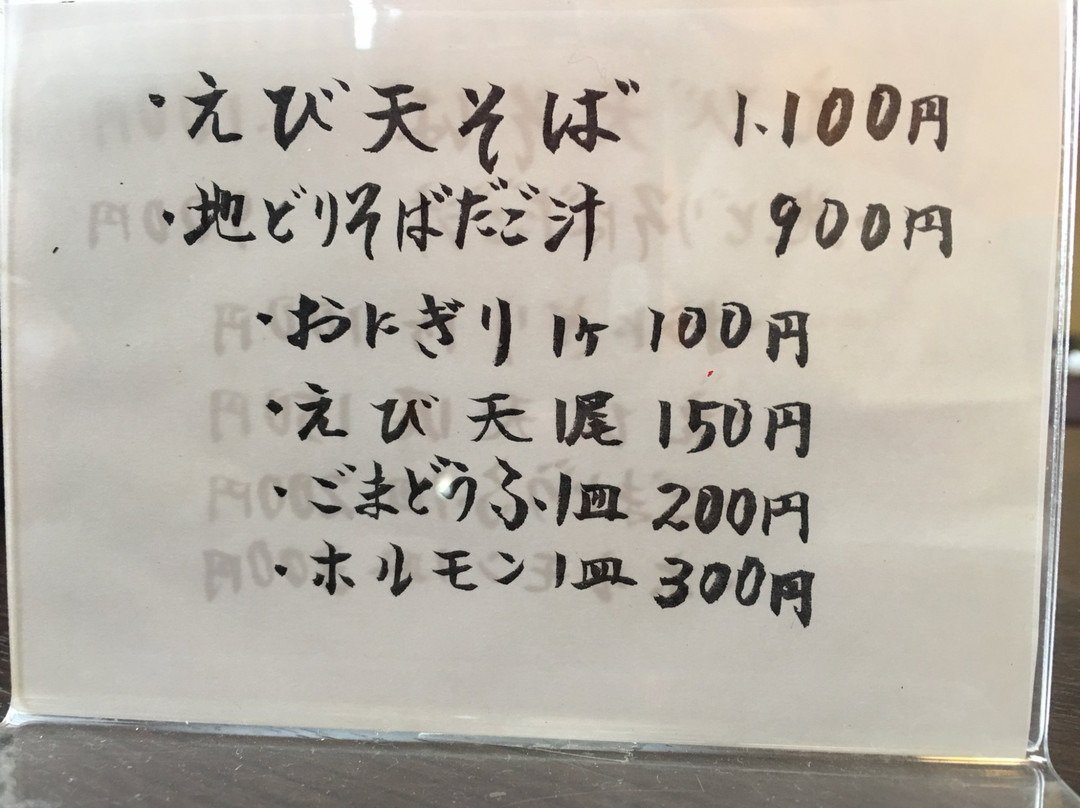 ・えび天そば 1.100円
・地どりそばだご汁 900円
・おにぎり 1ヶ 100円
・えび天 1尾 150円
・ごまどうふ.1皿 200円
・ホルモン 1皿 300円